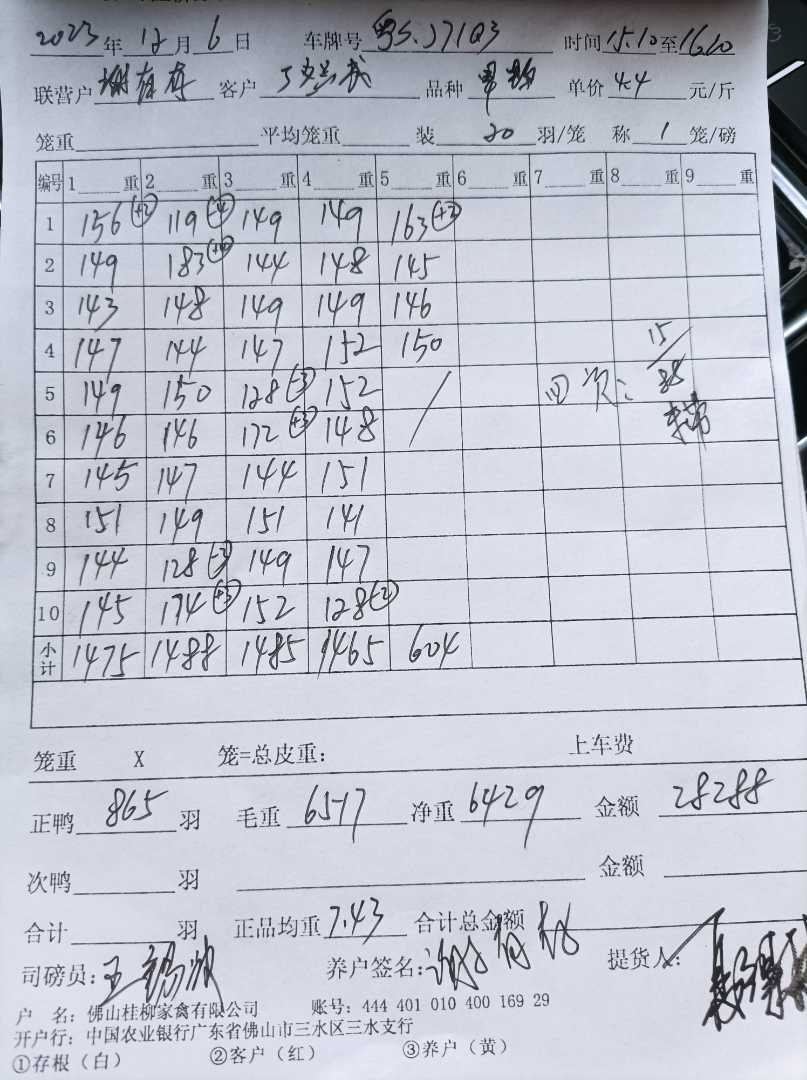 2023年 12月 6日 车牌号 粤S.J71Q3 时间 15.10至16.10
联营户 谢有存 客户 品种 单价 4.4 元/斤
笼重 平均笼重 装 20 羽/笼 称 1 笼/磅
编号 1 重 2 重 3 重 4 重 5 重 6 重 7 重 8 重 9 重
1 156(+2) 119(-4) 149 149 163(+2)
2 149 183(+4) 144 148 145
3 143 148 149 149 146
4 147 144 147 152 150 15/
5 149 150 128(-3) 152 / 四次:
6 146 146 172(+3) 148
7 145 147 144 151
8 151 149 151 141
9 144 128(-3) 149 147
10 145 174(+3) 152 128(-2)
小计 1475 1488 1485 1465 604
笼重 X 笼=总皮重: 上车费
正鸭 865 羽 毛重 6517 净重 6429 金额 28288
次鸭 羽 金额
合计 羽 正品均重 7.43 合计总金额
司磅员: 王 养户签名: 谢 提货人:
户 名: 佛山桂柳家禽有限公司 账号: 444 401 010 400 169 29
开户行: 中国农业银行广东省佛山市三水区三水支行
①存根(白) ②客户(红) ③养户(黄)